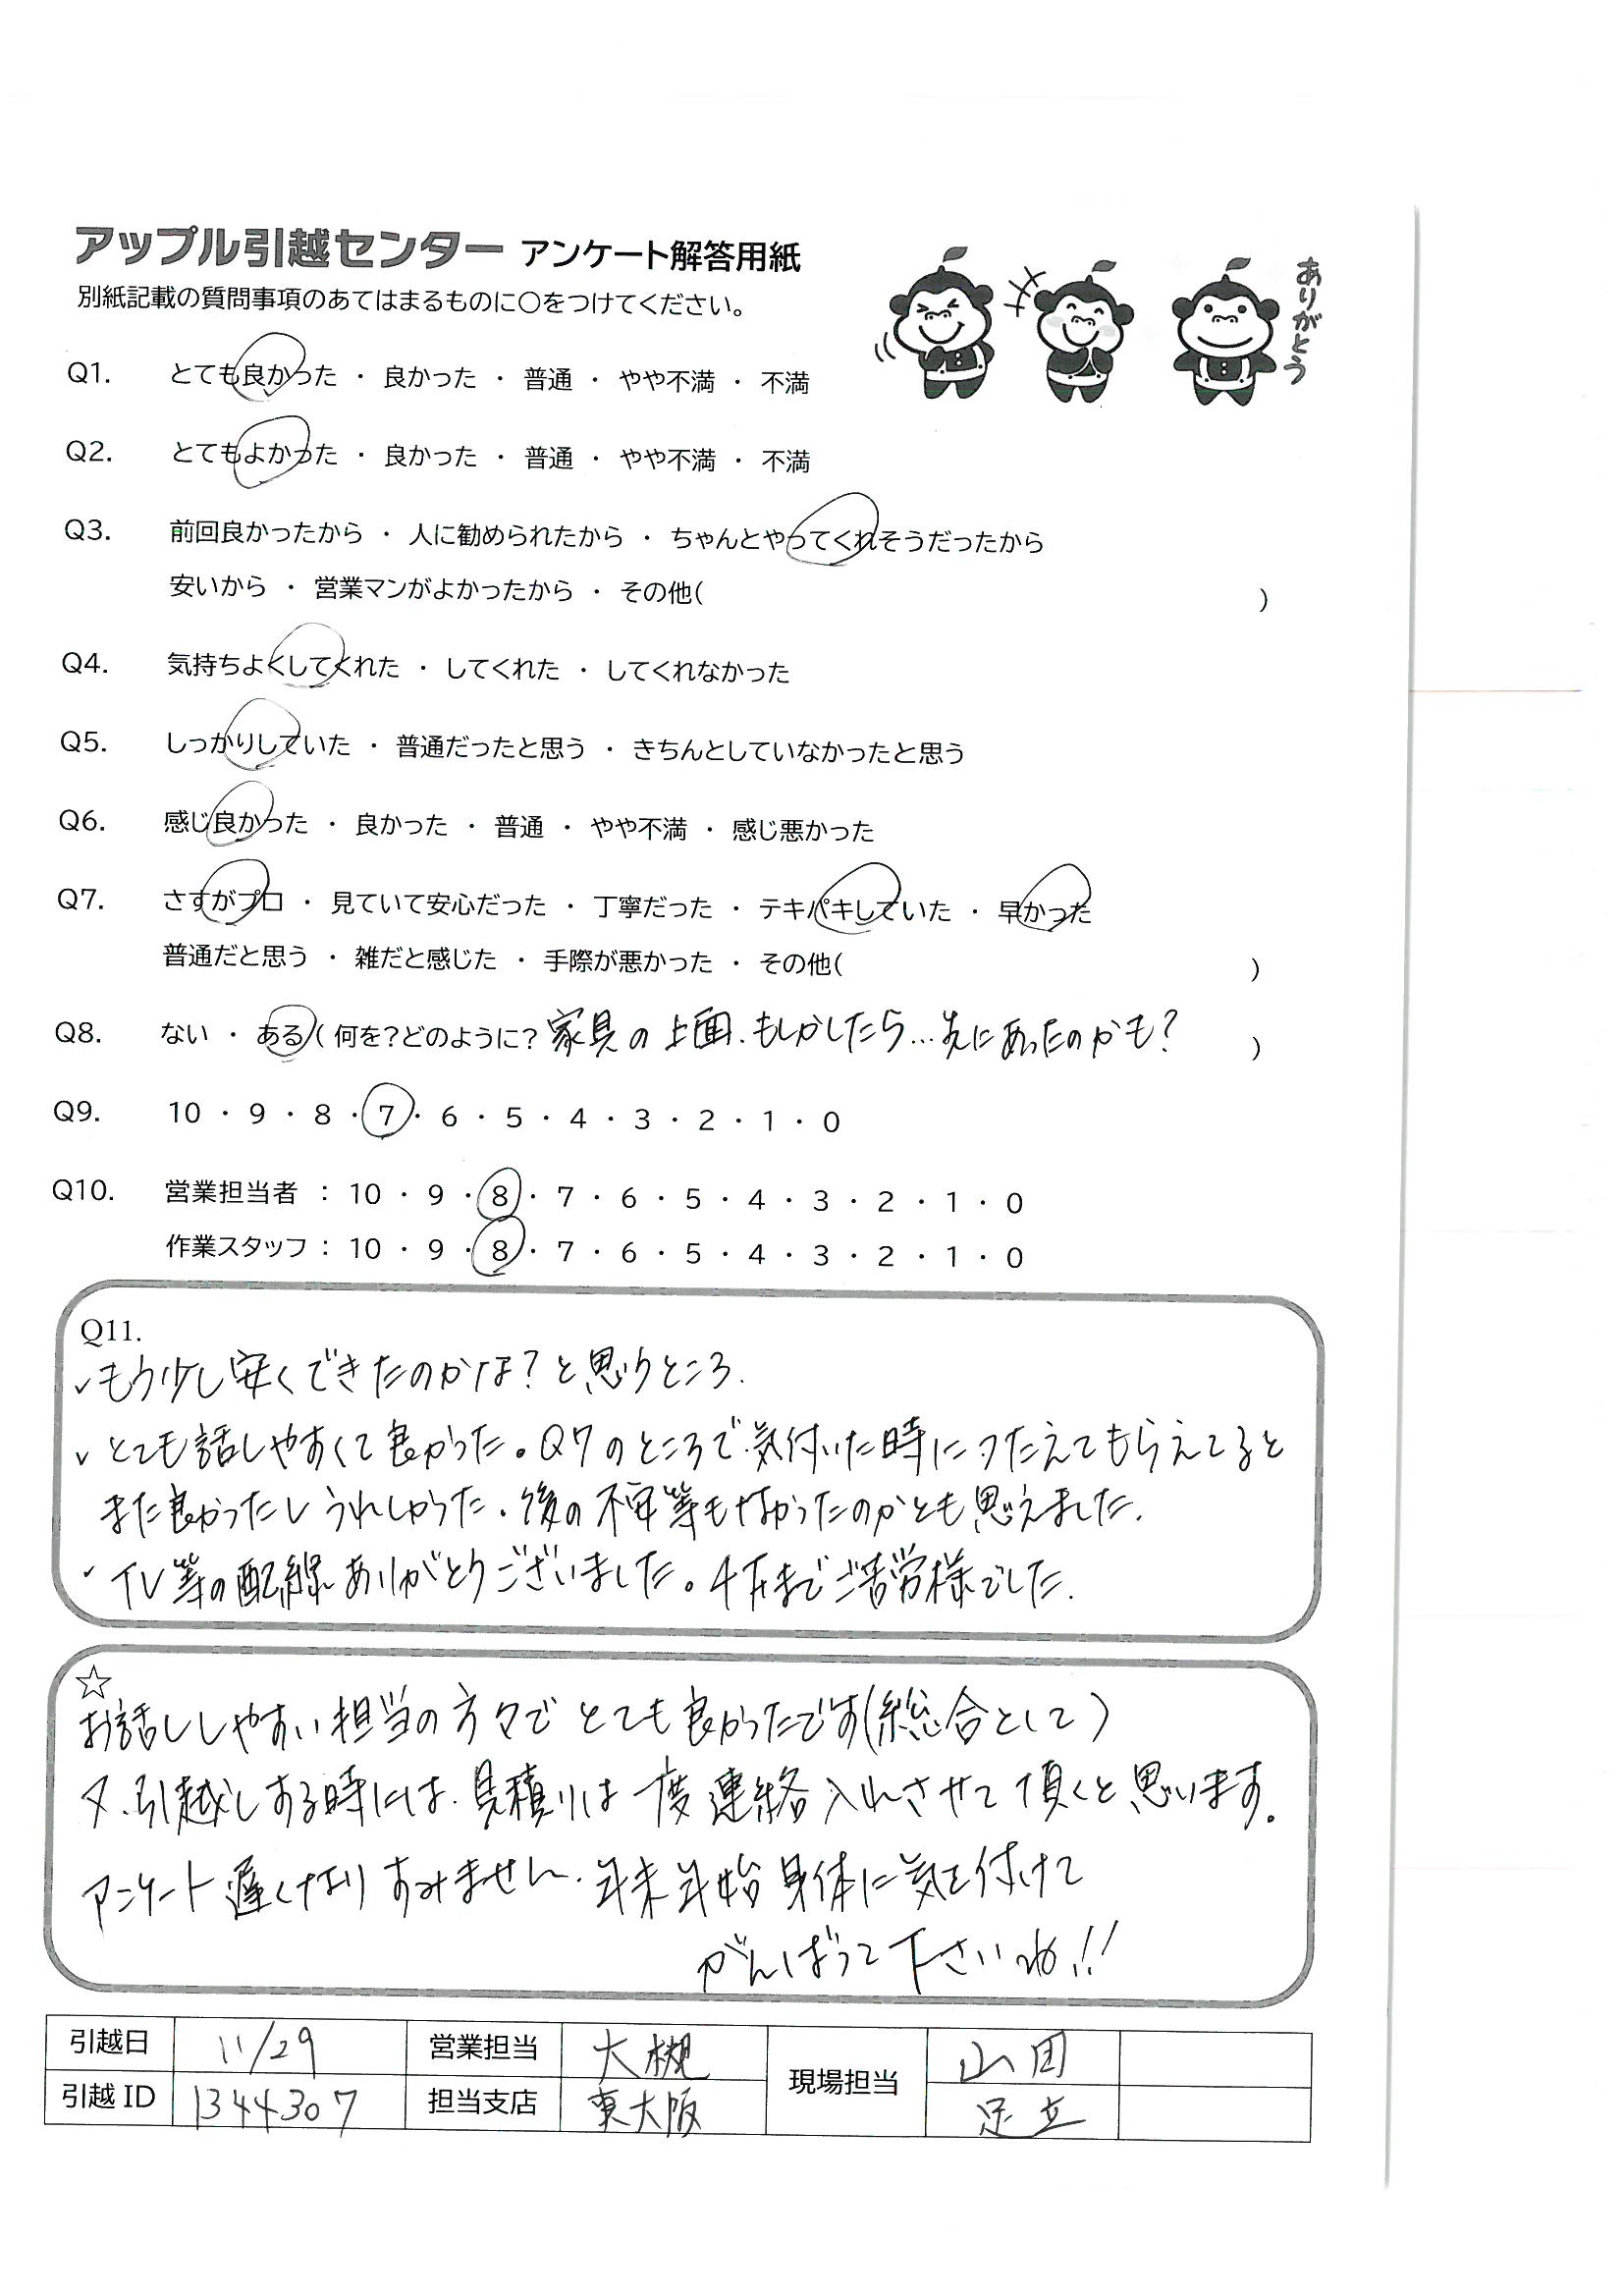 アップル引越センター アンケート解答用紙
別紙記載の質問事項のあてはまるものに○をつけてください。
ありがとう
Q1. とても良かった ・ 良かった ・ 普通 ・ やや不満 ・ 不満
Q2. とてもよかった ・ 良かった ・ 普通 ・ やや不満 ・ 不満
Q3. 前回良かったから ・ 人に勧められたから ・ ちゃんとやってくれそうだったから
安いから ・ 営業マンがよかったから ・ その他( )
Q4. 気持ちよくしてくれた ・ してくれた ・ してくれなかった
Q5. しっかりしていた ・ 普通だったと思う ・ きちんとしていなかったと思う
Q6. 感じ良かった ・ 良かった ・ 普通 ・ やや不満 ・ 感じ悪かった
Q7. さすがプロ ・ 見ていて安心だった ・ 丁寧だった ・ テキパキしていた ・ 早かった
普通だと思う ・ 雑だと感じた ・ 手際が悪かった ・ その他( )
Q8. ない ・ ある ( 何を?どのように? 家具の上面.もしかしたら…先にあったのかも? )
Q9. 10 ・ 9 ・ 8 ・ 7 ・ 6 ・ 5 ・ 4 ・ 3 ・ 2 ・ 1 ・ 0
Q10. 営業担当者 : 10 ・ 9 ・ 8 ・ 7 ・ 6 ・ 5 ・ 4 ・ 3 ・ 2 ・ 1 ・ 0
作業スタッフ : 10 ・ 9 ・ 8 ・ 7 ・ 6 ・ 5 ・ 4 ・ 3 ・ 2 ・ 1 ・ 0
Q11.
✓もう少し安くできたのかな?と思うところ.
✓とても話しやすくて良かった。Q7のところで気付いた時につたえてもらえてると
また良かったしうれしかった.後の不安等もなかったのかとも思えました.
✓TV等の配線ありがとうございました。4Fまでご苦労様でした.
☆
お話ししやすい担当の方々でとても良かったです(総合として)
又.引越しする時には.見積りは一度連絡入れさせて頂くと思います。
アンケート遅くなりすみません.年末年始身体に気を付けて
がんばって下さいね!!
引越日 11/29 営業担当 大槻 現場担当 山田
引越ID 1344307 担当支店 東大阪 足立